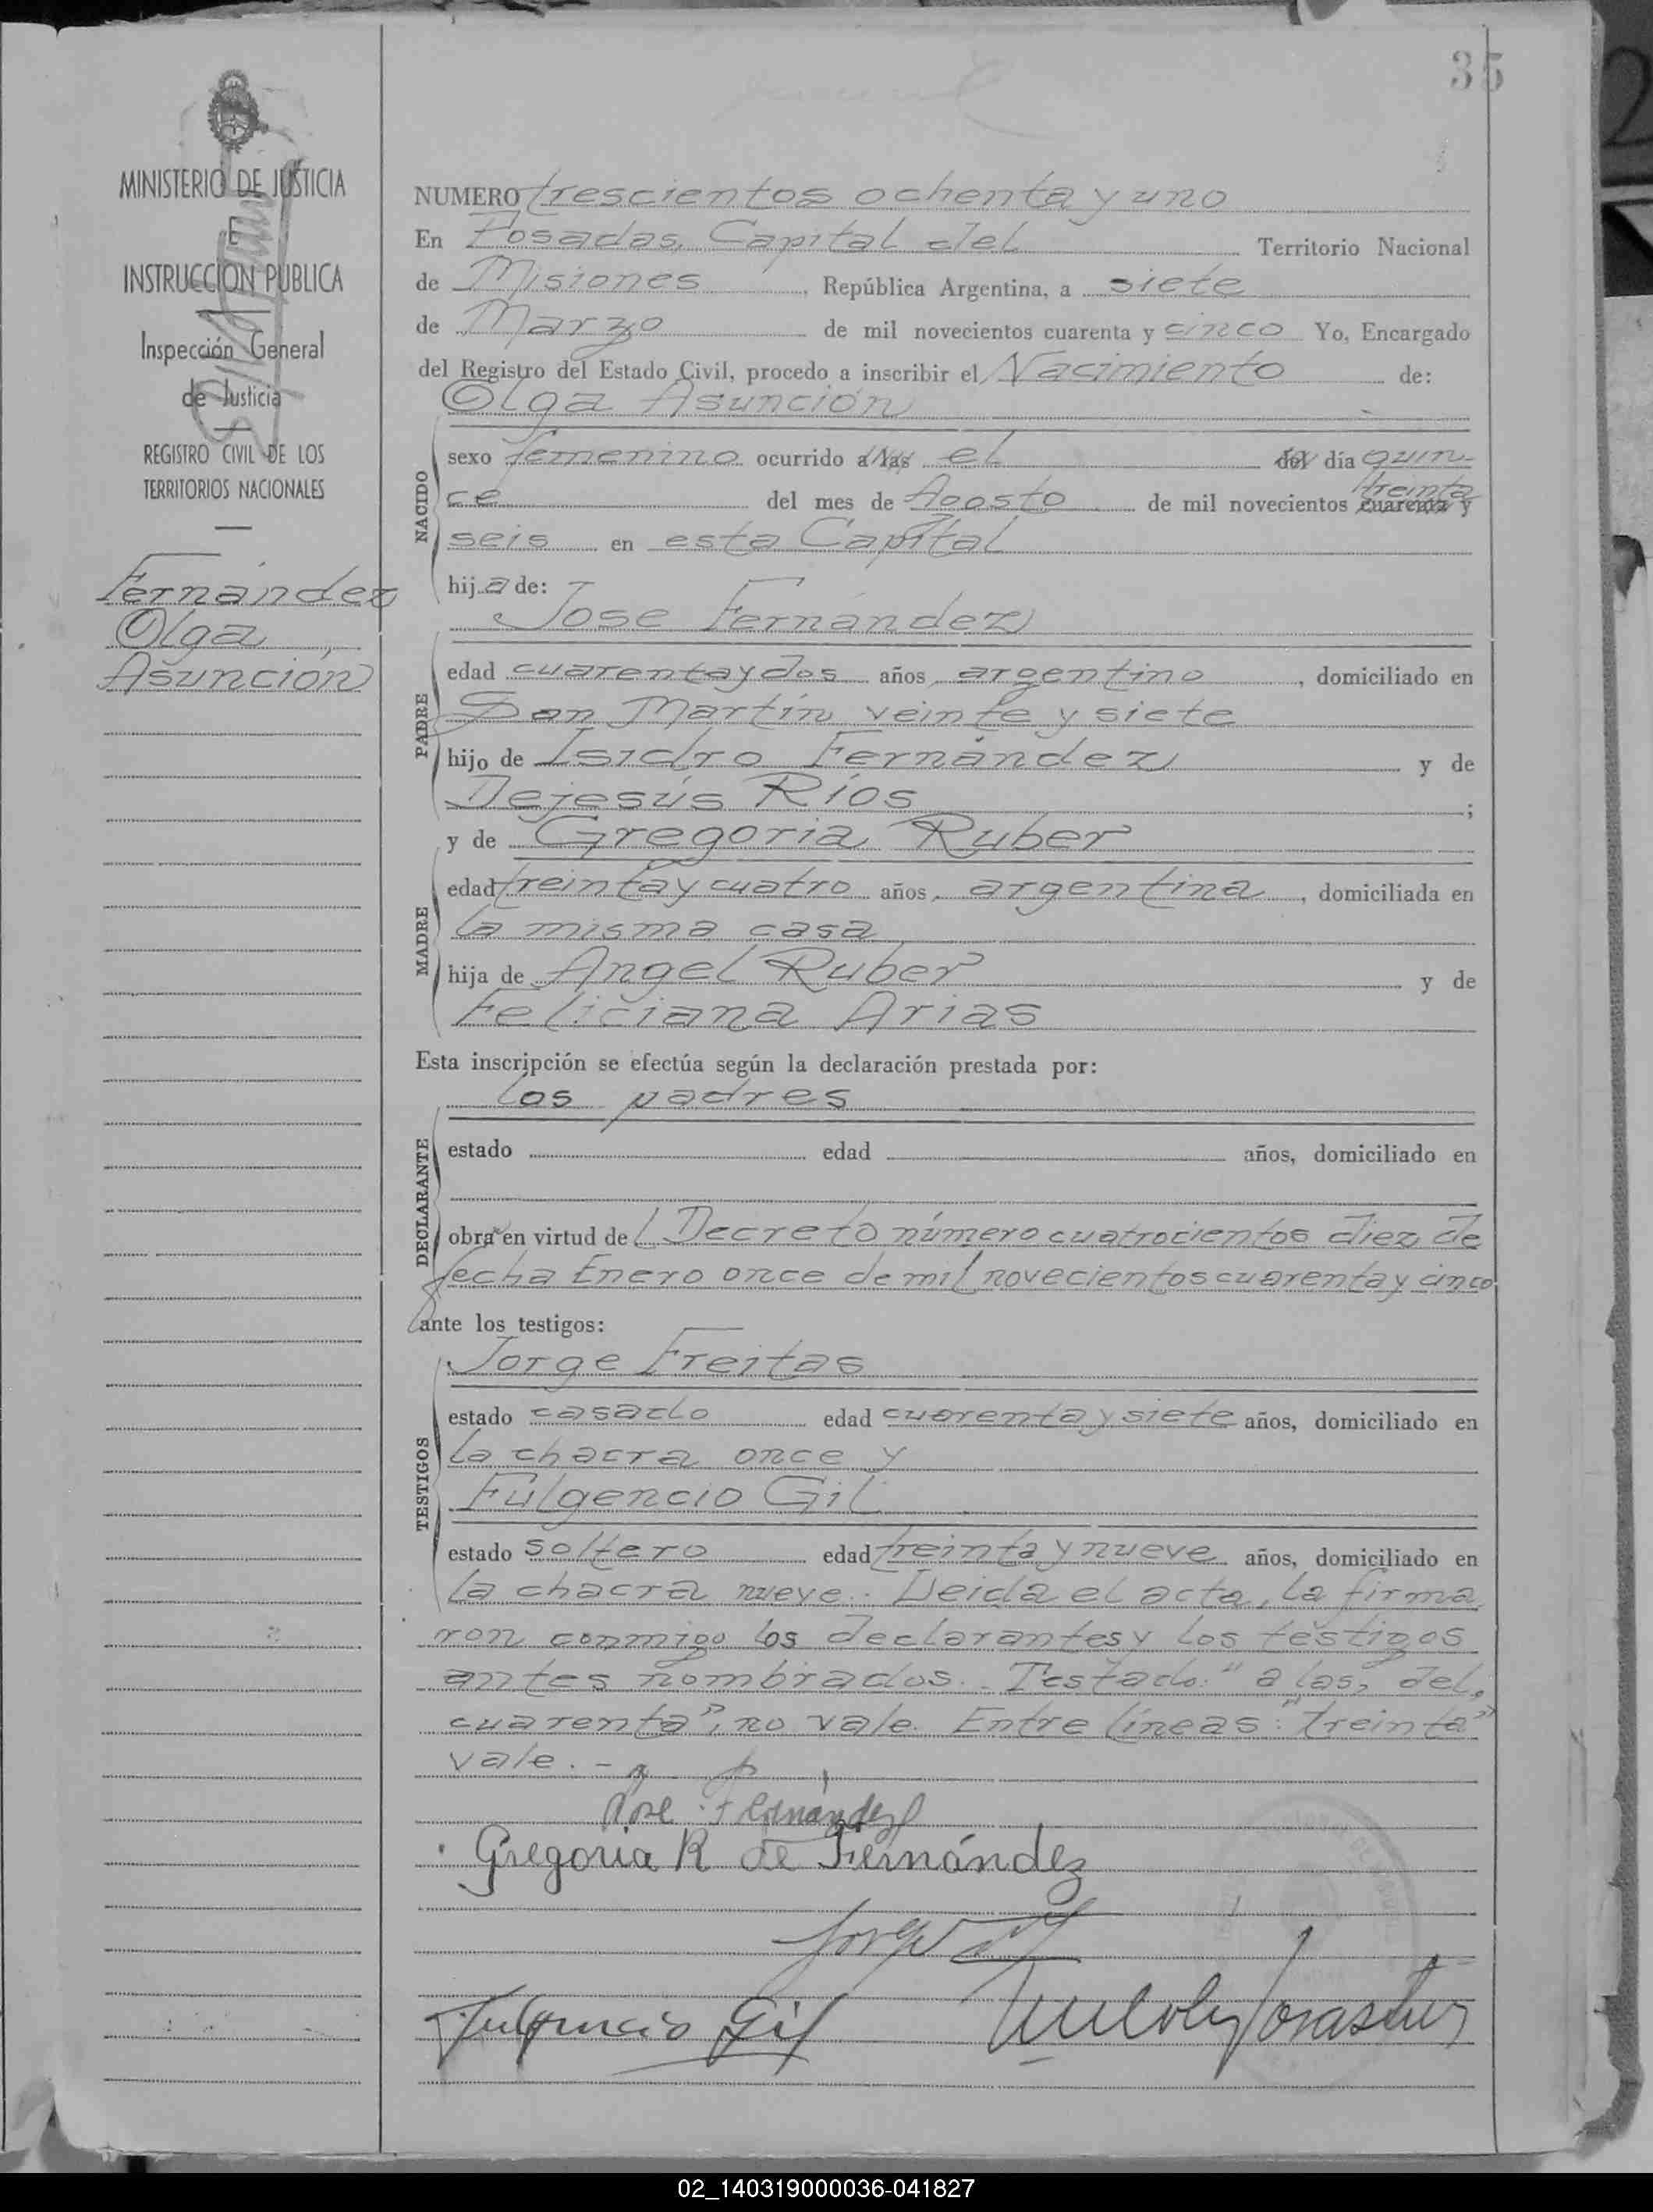 35
MINISTERIO DE JUSTICIA
E
INSTRUCCION PUBLICA
Inspección General
de Justicia
REGISTRO CIVIL DE LOS
TERRITORIOS NACIONALES
Fernández
Olga
Asunción
NUMERO trescientos ochenta y uno
En Posadas, Capital del Territorio Nacional
de Misiones, República Argentina, a siete
de Marzo de mil novecientos cuarenta y cinco Yo, Encargado
del Registro del Estado Civil, procedo a inscribir el Nacimiento de:
Olga Asunción
NACIDO
sexo femenino ocurrido a las el del día quin-
ce del mes de Agosto de mil novecientos cuarenta y treinta
seis en esta Capital
hija de:
José Fernández
PADRE
edad cuarenta y dos años, argentino, domiciliado en
San Martín veinte y siete
hijo de Isidro Fernández y de
Dejesús Ríos;
y de Gregoria Ruber
MADRE
edad treinta y cuatro años, argentina, domiciliada en
la misma casa
hija de Angel Ruber y de
Feliciana Arias
Esta inscripción se efectúa según la declaración prestada por:
los padres
DECLARANTE
estado edad años, domiciliado en
obra en virtud del Decreto número cuatrocientos diez de
fecha Enero once de mil novecientos cuarenta y cinco
ante los testigos:
Jorge Freitas
TESTIGOS
estado casado edad cuarenta y siete años, domiciliado en
la chacra once y
Fulgencio Gil
estado soltero edad treinta y nueve años, domiciliado en
la chacra nueve. Leida el acta, la firma
ron conmigo los declarantes y los testigos
antes nombrados. Testado: "a las, del,
cuarenta", no vale. Entre líneas: "treinta"
vale. -
José Fernández
Gregoria R de Fernández
Jorge
Fulgencio Gil
02_140319000036-041827